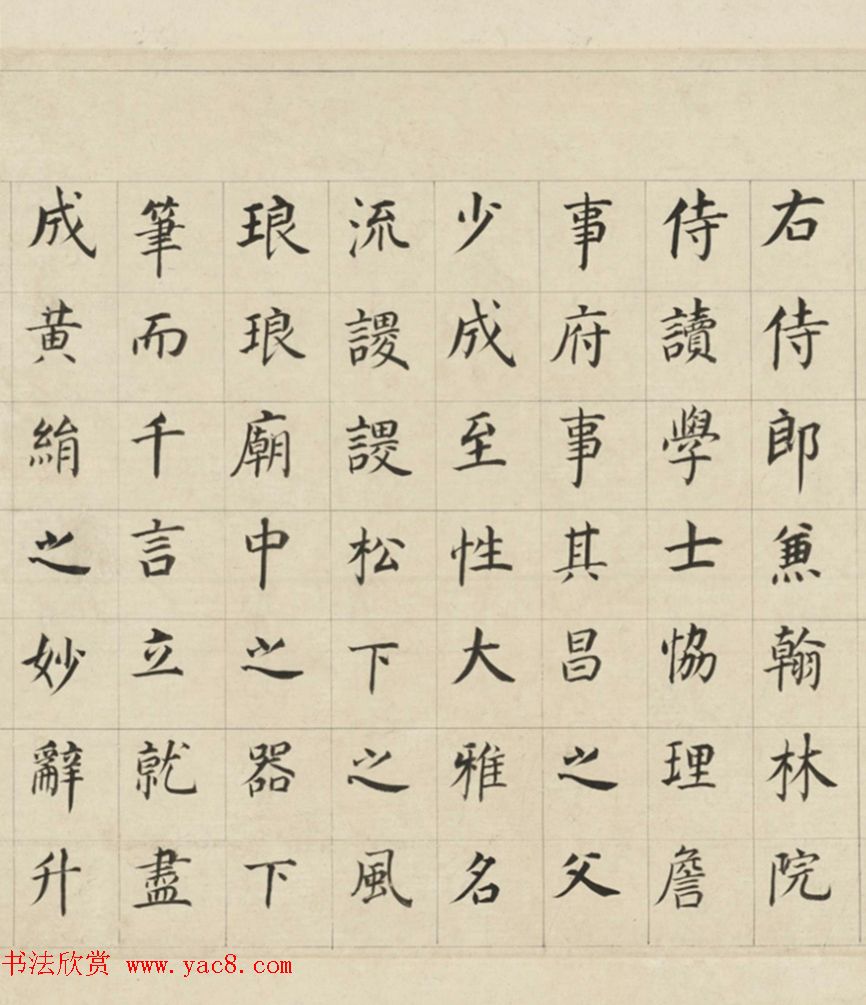 右侍郎兼翰林院
侍讀學士恊理詹
事府事其昌之父
少成至性大雅名
流謖謖松下之風
琅琅廟中之器下
筆而千言立就盡
成黃絹之妙辭升
书法欣赏 www.yac8.com